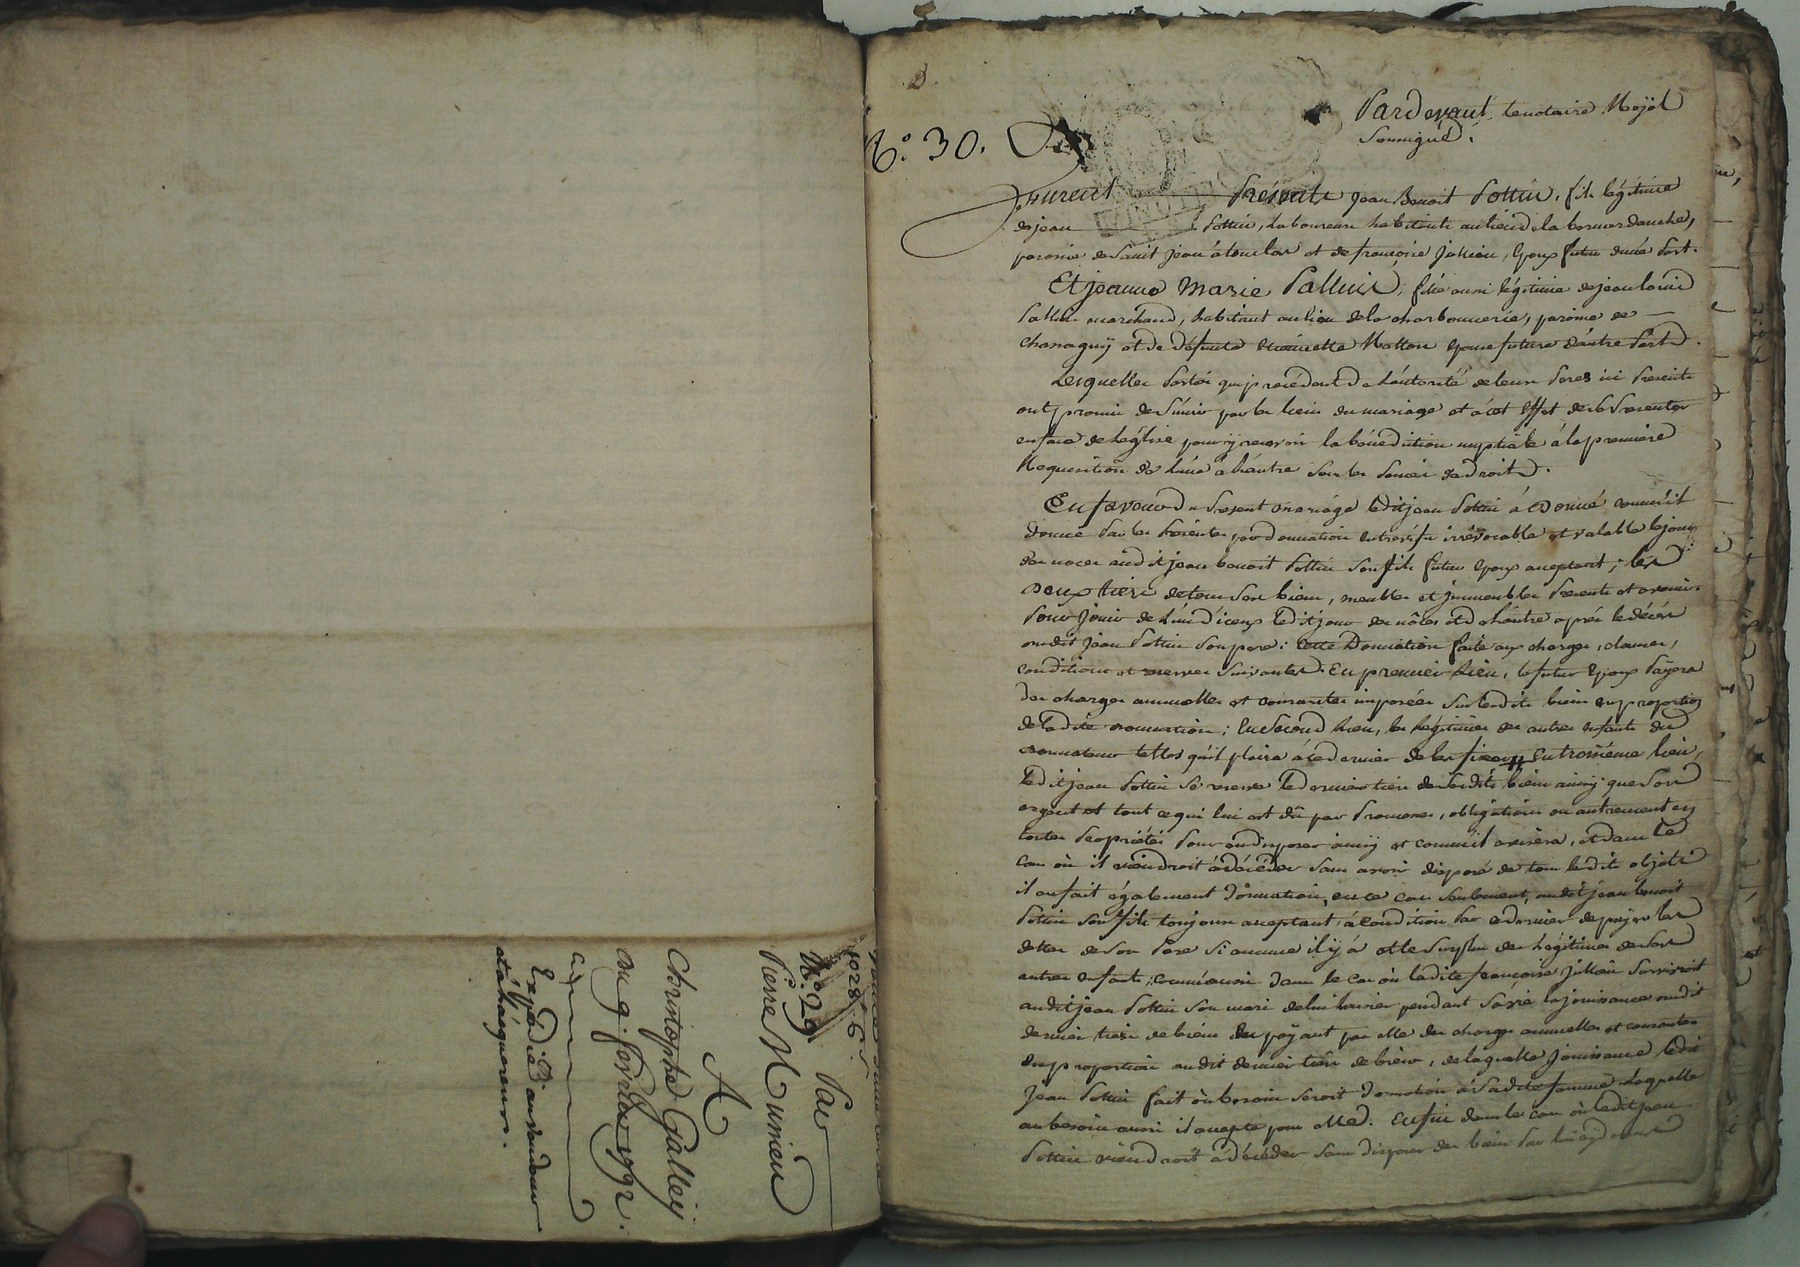 Par
Pierre Munieu
A
Christophe Galley
du 9. fevrier 1792.
Expédié au vendeur
et à l'acquereur.
N.° 30.
Pardevant le notaire Royal
Soussigné.
Furent Présents Jean Benoit Pottin, fils légitime
de jean Pottin, Laboureur habitant au lieu de la
paroisse de Saint Jean à toulas et de françoise Jullien, Epoux futur d'une Part.
Et jeanne Marie Palluis, fille aussi légitime de jean louis
Palluis marchand, habitant au lieu de la charbonnerie, paroisse de
Chanagny et de défunte Mollon Epouse future d'autre Part.
Lesquelles Parties qui procédent de l'autorité de leurs Peres ici Presents
ont promis de S'unir par les liens du mariage et à cet effet de se Presenter
en face de l'église pour y recevoir la bénédiction nuptiale à la première
Requisition de l'une à l'autre Sous les Peines de droit.
En faveur du Present mariage ledit jean Pottin à Donné comme il
donne Par les Présentes par donnation entrevifs irrévocable et valable le jour
des noces audit jean benoit Pottin Son fils futur Epoux acceptant; les
Deux tiers de tous Ses biens, meubles et jmmeubles Presents et avenir.
Pour Jouir de l'un d'iceux ledit jour des nôces et de l'autre après le décés
dudit Jean Pottin Son pere: cette Donnation faite aux charges, clauses,
conditions et reserves Suivantes. En premier Lieu, le futur Epoux Payera
des charges annuelles et courantes imposées Sur lesdits biens en proportion
de ladite donnation; En Second Lieu, les légitimes des autres Enfants du
donnateur telles qu'il plaira à ce dernier de les fixer, En troisième lieu,
Ledit jean Pottin Se reserve le dernier tiers de Sesdits biens ainsy que Son
argent et tout ce qui lui est dû par Promesses, obligations ou autrement en
toutes Propriétés Pour en disposer ainsy et comme il avisera, et dans le
Cas où il viendroit à décéder Sans avoir disposé de tous lesdits objets
il en fait également donnation, en ce cas Seulement, audit jean benoit
Pottin Son fils toujours acceptant, à condition Par ce dernier de payer les
dettes de Son Pere Si aucunes il y à et le Surplus des Légitimes de Ses
autres Enfants; comme aussi dans le Cas où ladite françoise Jullien Survivroit
audit jean Pottin Son mari de lui laisser pendant Sa vie la jouissance dudit
dernier tiers de biens en payant par elle des charges annuelles et courantes
en proportion dudit dernier tiers de biens, de laquelle Jouissance ledit
Jean Pottin fait où besoin Seroit donnation à Sadite femme Laquelle
au besoin aussi il accepte pour elle. Enfin dans le cas où ledit jean
Pottin viendroit à décéder Sans disposer des biens Par lui